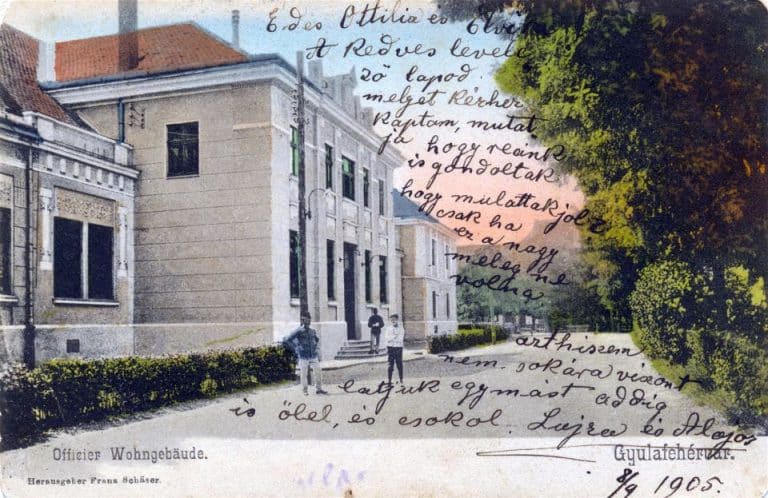 Edes Ottilia es Elvira
A Kedves levele
ző lapod
melyet Kézhez
Kaptam, mutat
ja hogy reánk
is gondoltak
hogy mulattak jól
csak ha
ez a nagy
meleg ne
volna
azthiszem
nem sokára viszont
latjuk egymást addig
is ölel, és csokol. Lujza és Alajos
Officier Wohngebäude.
Gyulafehérvár.
Herausgeber Franz Schäser.
8/9 1905.